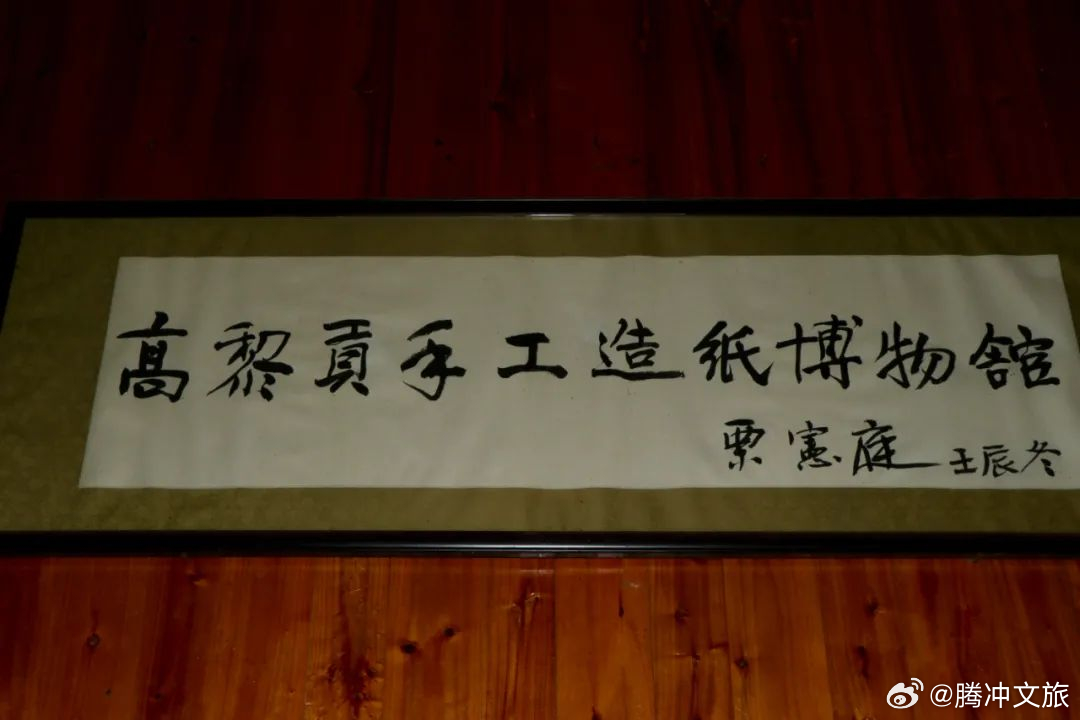 高黎貢手工造紙博物館
栗憲庭 壬辰冬
@腾冲文旅